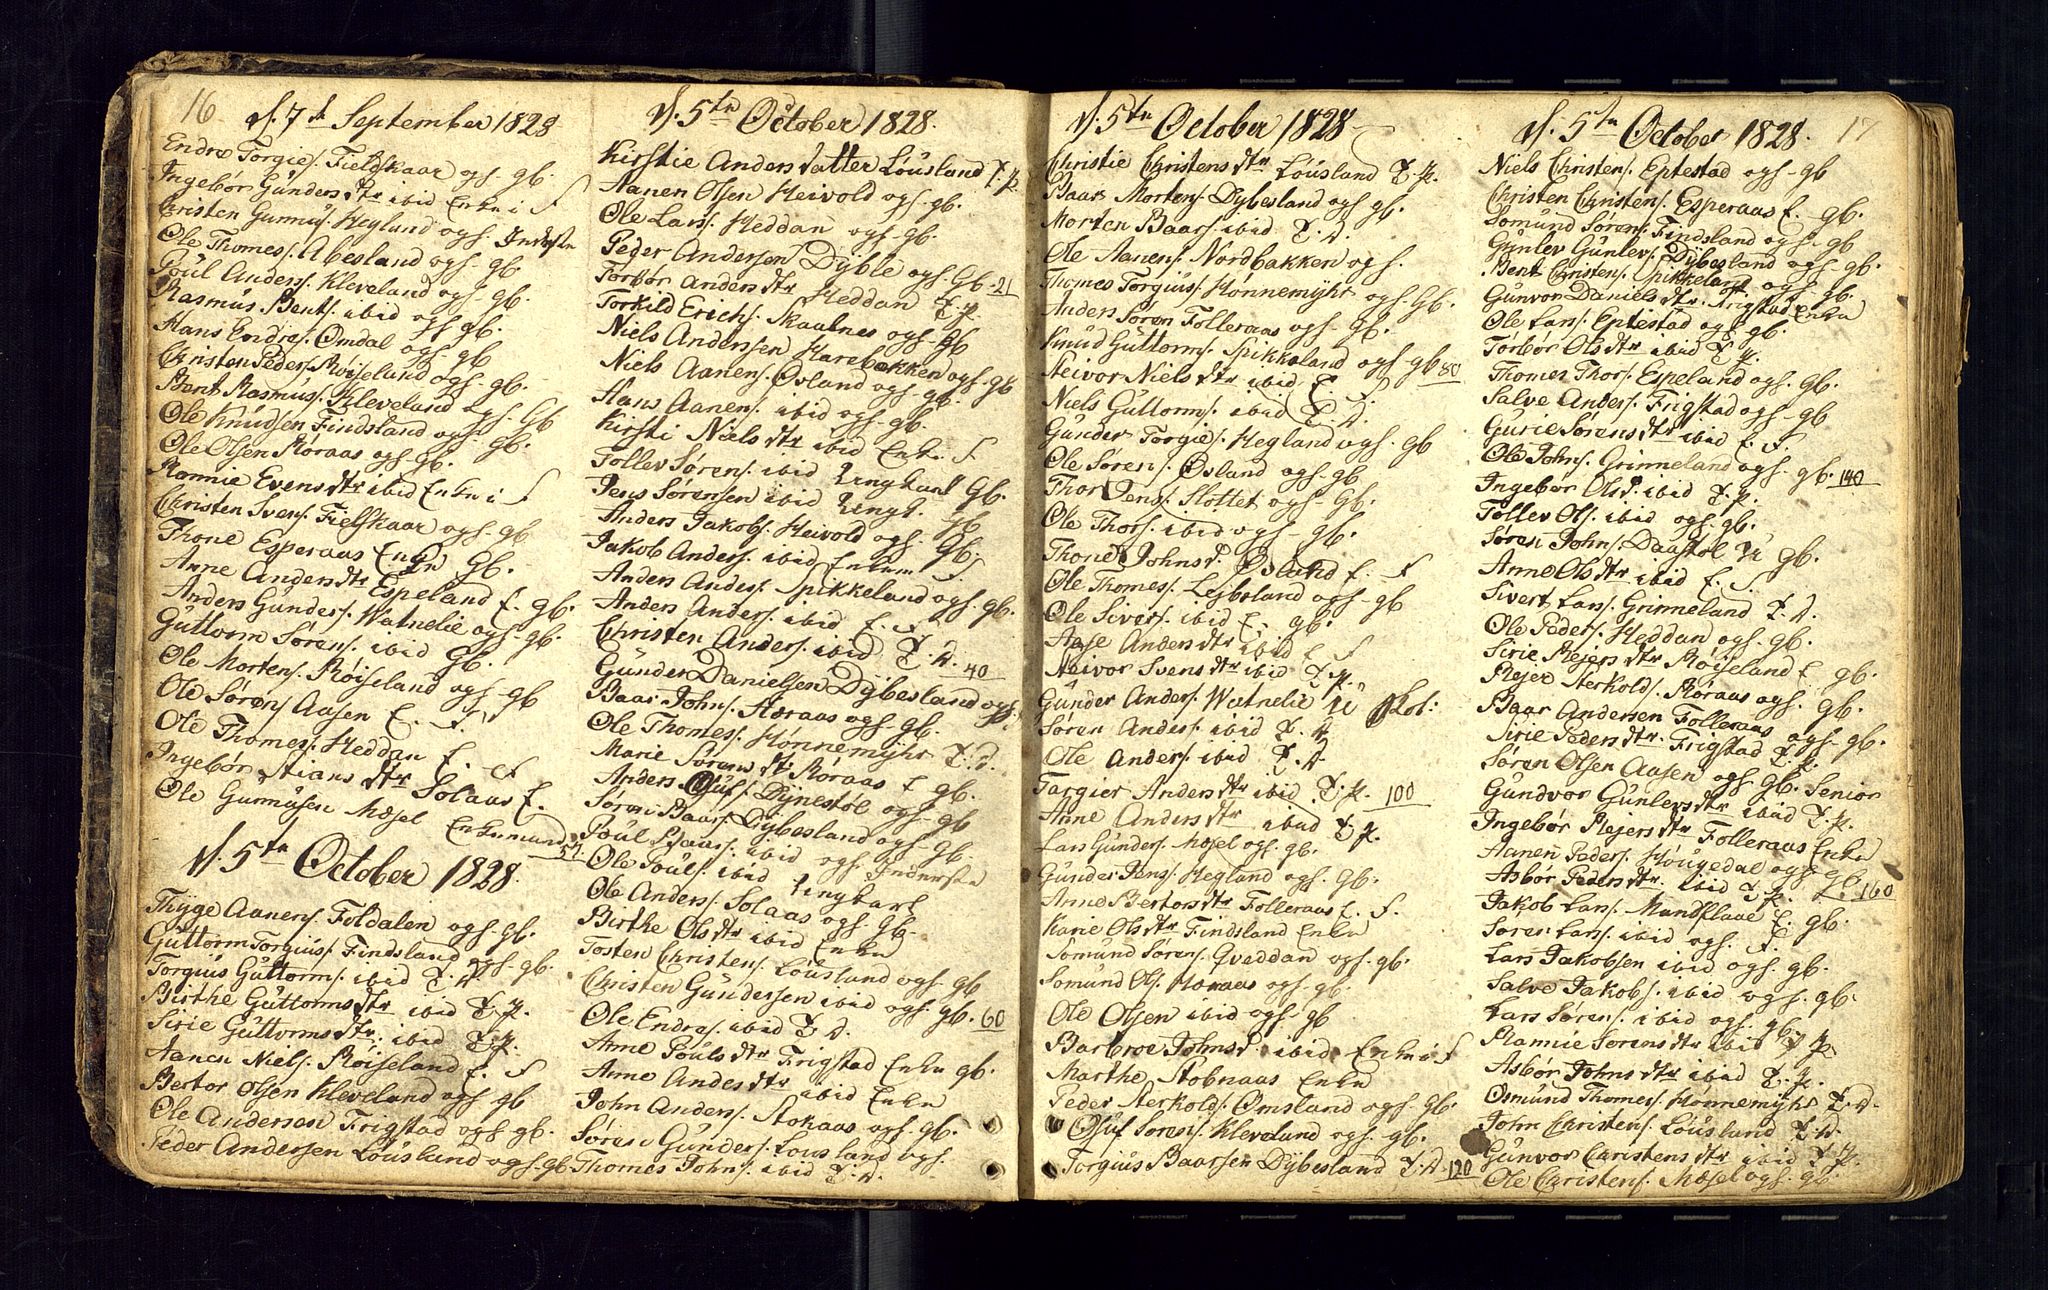 16
d. 7de September 1828
Endre Torgies. Fieldskaar ogs. gb.
Ingebør Gunders dtr ibid Enke i F
Christen Gunnus. Hegland ogs. Inderste
Ole Thomes. Abesland ogs. gb
Poul Anders. Kleveland ogs. gb.
Rasmus Bents. ibid ogs gb.
Hans Endres. Omdal ogs. gb
Christen Peders. Røiseland ogs. gb.
Bent Rasmus. Kleveland ogs. Gb
Ole Knudsen Findsland ogs. gb.
Ole Olsen Røraas ogs. gb.
Rannie Evens dtr ibid Enke i F
Christen Svens. Fielskaar ogs. gb
Thone Esperaas Enke Gb.
Anne Anders dtr Espeland E. gb.
Anders Gunders. Watnelie ogs. gb.
Guttorm Sørens. ibid Gb.
Ole Mortens. Røiseland ogs. gb
Ole Sørens Aasen E. F.
Ole Thomes. Heddan E. F
Ingebør Stians dtr Solaas E.
Ole Gunnusen Mosel Enkemand 57.
d. 5te October 1828.
Thyge Aanens. Foldalen ogs. Gb.
Guttorm Torgius. Findsland ogs. gb.
Torgius Guttorms. ibid T. D.
Birthe Guttorms dtr ibid T. P.
Sirie Guttorms dtr. ibid T. P.
Aanen Niels. Røiseland E. F
Bertor Olsen Kleveland ogs gb
Ole Andersen Frigstad ogs. gb.
Peder Andersen Lousland ogs. gb
d. 5te October 1828.
Kirstie Anders datter Lousland T. P.
Aanen Olsen Heivold ogs. gb.
Ole Lars. Heddan ogs. Gb.
Peder Andersen Dyble ogs. Gb. 21
Torbør Anders dtr Heddan T. P.
Torkild Erichs. Skaalnes ogs. Gb
Niels Anderssen Harebakken ogs. gb
Niels Aanens. Øsland ogs. gb.
Hans Aanens. ibid ogs. gb.
Kirsti Niels dtr ibid Enke F
Tollev Sørens. ibid Ungkarl Gb.
Jens Sørensen ibid Ungk. Gb
Anders Jakobs. Heivold ogs. Gb.
Jakob Anders. ibid Enkem F.
Anders Anders. Spikkeland ogs. gb.
Anders Anders. ibid E. F
Christen Anders. ibid T. D. 40
Gunder Danielsen Dybesland ogs. gb
Baar Johns. Røraas ogs. gb.
Ole Thomes. Honnemyhr T. D.
Marie Sørens dtr Røraas E gb.
Anders Osufs. Dynestøl ogs. gb
Søren Baars. Dybesland ogs. gb
Poul Baars. ibid ogs Inderste
Ole Pouls. ibid Ungkarl
Ole Anders. Solaas ogs. Gb.
Birthe Ols dtr ibid Enke
Tosten Christens. Lousland ogs. gb
Christen Gundersen ibid ogs. gb. 60
Ole Endres. ibid T. D.
Anne Pouls dtr Frigstad Enke gb.
Anne Anders dtr ibid Enke
John Anders. Stokaas ogs. gb.
Søren Gunders. Lousland ogs.
Thomes Johns. ibid T. D.
d. 5te October 1828
Christie Christens dtr Lousland T. P.
Baar Mortens. Dybesland ogs gb.
Morten Baars. ibid T. D.
Ole Aanens. Nordbakken ogs.
Thomes Torgius. Honnemyhr ogs. Gb.
Anders Søren Folleraas ogs. gb.
Knud Guttorms. Spikkeland ogs gb 80
Steivor Niels dtr ibid E. F.
Niels Guttorms. ibid T. D.
Gunder Torgies. Hegland ogs. Gb
Ole Sørens. Øsland ogs. gb
Thor Jens. Slottet ogs. Gb.
Ole Thors. ibid ogs. gb.
Thone Johnsd. Øsland E. F
Ole Thomes. Lejbsland ogs. gb
Ole Sivers. ibid E. gb.
Aase Anders dtr ibid E F
Steivor Svens dtr ibid T. P.
Gunder Anders. Watnelie U Skol:
Søren Anders. ibid T. D.
Ole Anders. ibid T. D.
Targier Anders dtr ibid T. P. 100
Anne Anders dtr ibid T. P.
Lars Gunders. Mosel ogs. gb.
Gunder Jens. Hegland ogs. Gb.
Anne Bertors dtr Folleraas E. F.
Karie Ols dtr Findsland Enke
Somund Sørens. Qveddan ogs. gb.
Somund Ols. Horaas ogs. gb.
Ole Olsen ibid ogs. gb
Barbroe Johnsd. ibid Enke i F
Marthe Stobnaas Enke
Peder Sterkolds. Ømsland ogs. Gb.
Osuf Sørens. Kleveland ogs. gb.
Torgius Baarsen Dybesland T. D. 120
d. 5te October 1828. 17
Niels Christens. Eptestad ogs. gb
Christen Christens. Esperaas E. gb.
Somund Sørens. Findsland ogs. gb
Gunlev Gunlevs. Dybesland ogs. gb.
Bent Christens. Spikkeland ogs. gb.
Gunvor Daniels dtr. Frigstad Enke
Ole Lars. Eptestad ogs. gb.
Torbør Ols dtr ibid T. P.
Thomes Thors. Espeland ogs. Gb.
Salve Anders. Frigstad ogs. gb
Gurie Sørens dtr ibid E. F.
Ole Johns. Grinneland ogs. gb. 140
Ingebør Olsd. ibid T. P.
Tollev Ols. ibid ogs. gb.
Søren Johns. Daastøl U gb.
Anne Ols dtr ibid E. F.
Sivert Lars. Grinneland T. D.
Ole Peders. Heddan ogs. gb.
Sirie Rejers dtr Røiseland E gb.
Rejer Sterkolds. Røraas ogs. gb.
Baar Andersen Folleraas ogs. gb.
Sirie Peders dtr. Frigstad T. P.
Søren Olsen Aasen ogs. gb. Senior
Gundvor Gunlevs dtr ibid T. P.
Ingebør Rejers dtr Folleraas Enke
Aanen Peders. Hougedal ogs. gb.
Asbør Peders dtr. ibid T. P. 160
Jakob Lars. Mandflaae E. gb.
Søren Lars. ibid ogs. F.
Lars Jakobsen ibid ogs. gb.
Salve Jakobs. ibid ogs. gb.
Lars Sørens. ibid ogs. gb.
Rannie Sørens dtr ibid T. P.
Asbør Johns dtr ibid T. P.
Osmund Thomes. Honnemyhr T. D.
John Christens. Lousland T. D.
Gunvor Christens dtr ibid T. P.
Ole Christens. Mosel ogs. gb.